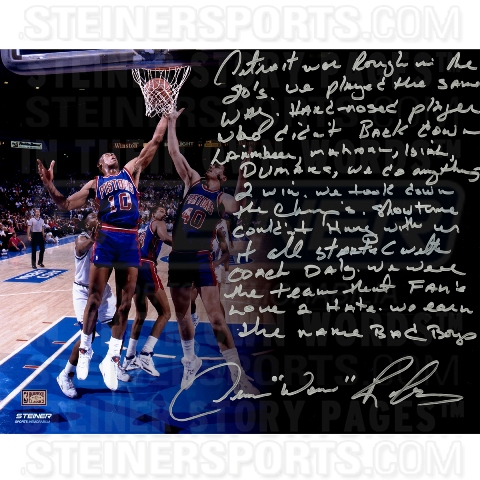 .STEINERSPORTS.COM
Detroit was Rough in the
80's. we played the same
way, Hard-nosed player
who didn't Back down
Laimbeer, mahorn, Isiah,
Dumars, we do anything
2 win. we took down
the Champs. Showtime
couldn't Hang with us
it all started with
coach Daly. We were
the team that Fan's
Love 2 Hate. we earn
the name Bad Boys
"Worm"
PISTONS
10
40
Winston
STEINER
SPORTS MEMORABILIA
.STEINERSPORTS.COM